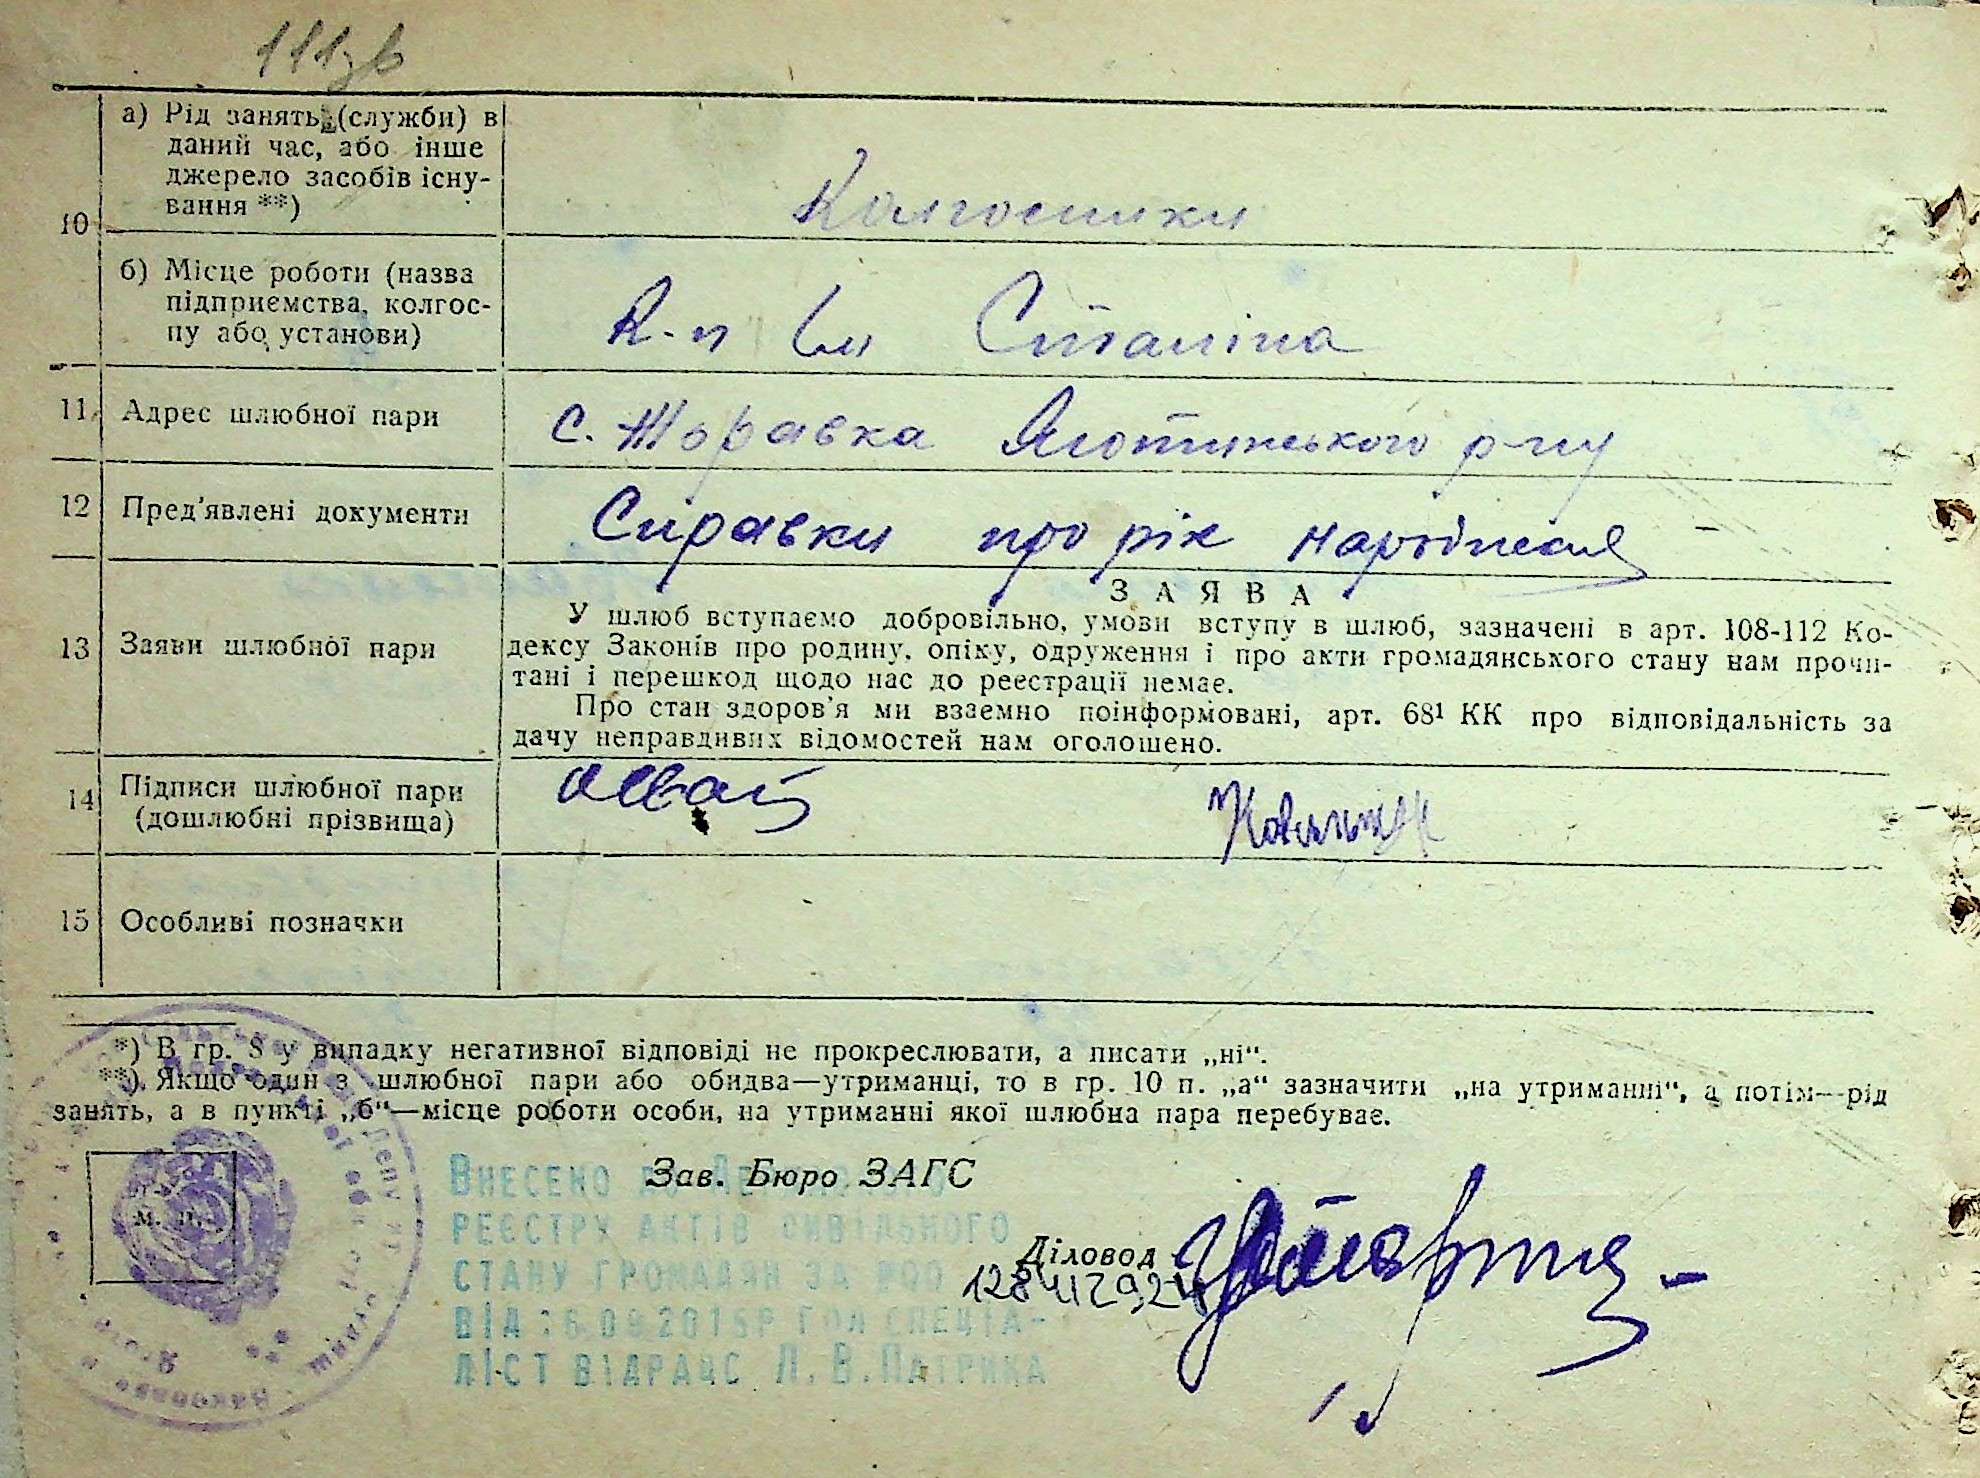 111зв
10
а) Рід занять (служби) в
даний час, або інше
джерело засобів існу-
вання **)
Колгоспники
б) Місце роботи (назва
підприємства, колгос-
пу або установи)
К-п ім Сталіна
11 Адрес шлюбної пари
с. Жоравка Яготинського р-ну
12 Пред'явлені документи
Справки про рік народження
13 Заяви шлюбної пари
ЗАЯВА
У шлюб вступаємо добровільно, умови вступу в шлюб, зазначені в арт. 108-112 Ко-
дексу Законів про родину, опіку, одруження і про акти громадянського стану нам прочи-
тані і перешкод щодо нас до реєстрації немає.
Про стан здоров'я ми взаємно поінформовані, арт. 68¹ КК про відповідальність за
дачу неправдивих відомостей нам оголошено.
14 Підписи шлюбної пари
(дошлюбні прізвища)
15 Особливі позначки
*) В гр. 8 у випадку негативної відповіді не прокреслювати, а писати „ні“.
**) Якщо один з шлюбної пари або обидва—утриманці, то в гр. 10 п. „а“ зазначити „на утриманні“, а потім—рід
занять, а в пункті „б“—місце роботи особи, на утриманні якої шлюбна пара перебуває.
м. п.
Зав. Бюро ЗАГС
Діловод
Внесено до Державного
реєстру актів цивільного
стану громадян за
від 16 09 2015р гол спеціа-
ліст відрацс Л. В. Патрика